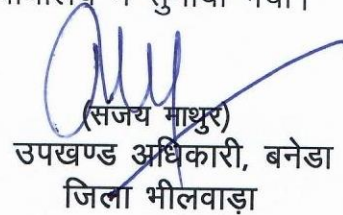 में सुनाया गया।
(संजय माथुर)
उपखण्ड अधिकारी, बनेडा
जिला भीलवाड़ा